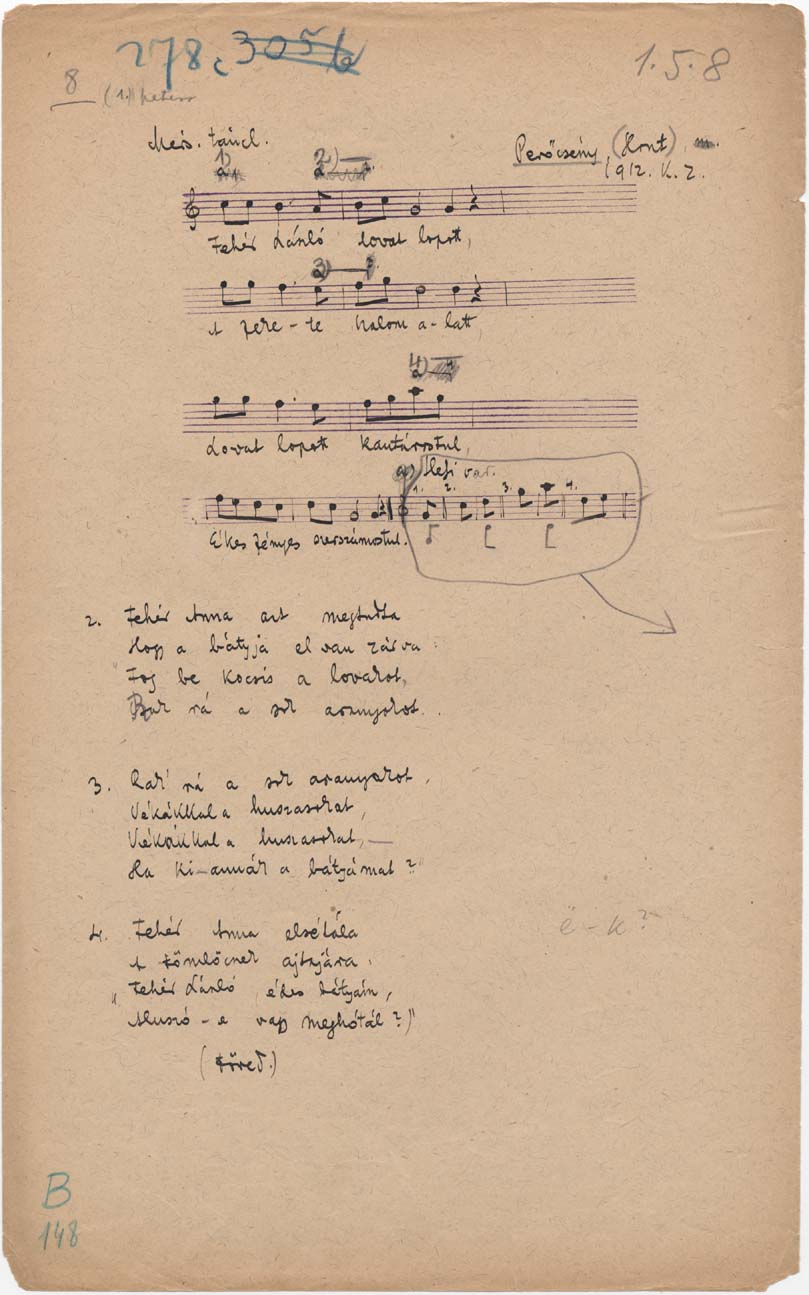 278.c 305/b
1.5.8
8
(1.)
Mérs. táncl.
Perőcsény, (Hont)
1912. K. Z.
1) 2)
Fehér László lovat lopott,
3)
A fekete halom a-latt,
4)
Lovat lopott kantárostul,
az Ipsf var.
1. 2. 3. 4.
Ékes fényes szerszámostul.
2. Fehér Anna azt megtudta
Hogy a bátyja el van zárva:
"Fog be kocsis a lovakot,
Rak rá a sok aranyokot.
3. Rak' rá a sok aranyokot,
Vékákkal a huszasokat,
Vékákkal a huszasokat,
Ha ki-annák a bátyámat?"
4. Fehér Anna elsétála
A tömlöcnek ajtajára:
"Fehér László, édes bátyám,
Aluszó-e vagy meghótál?"
ë-k?
(töred.)
B
148